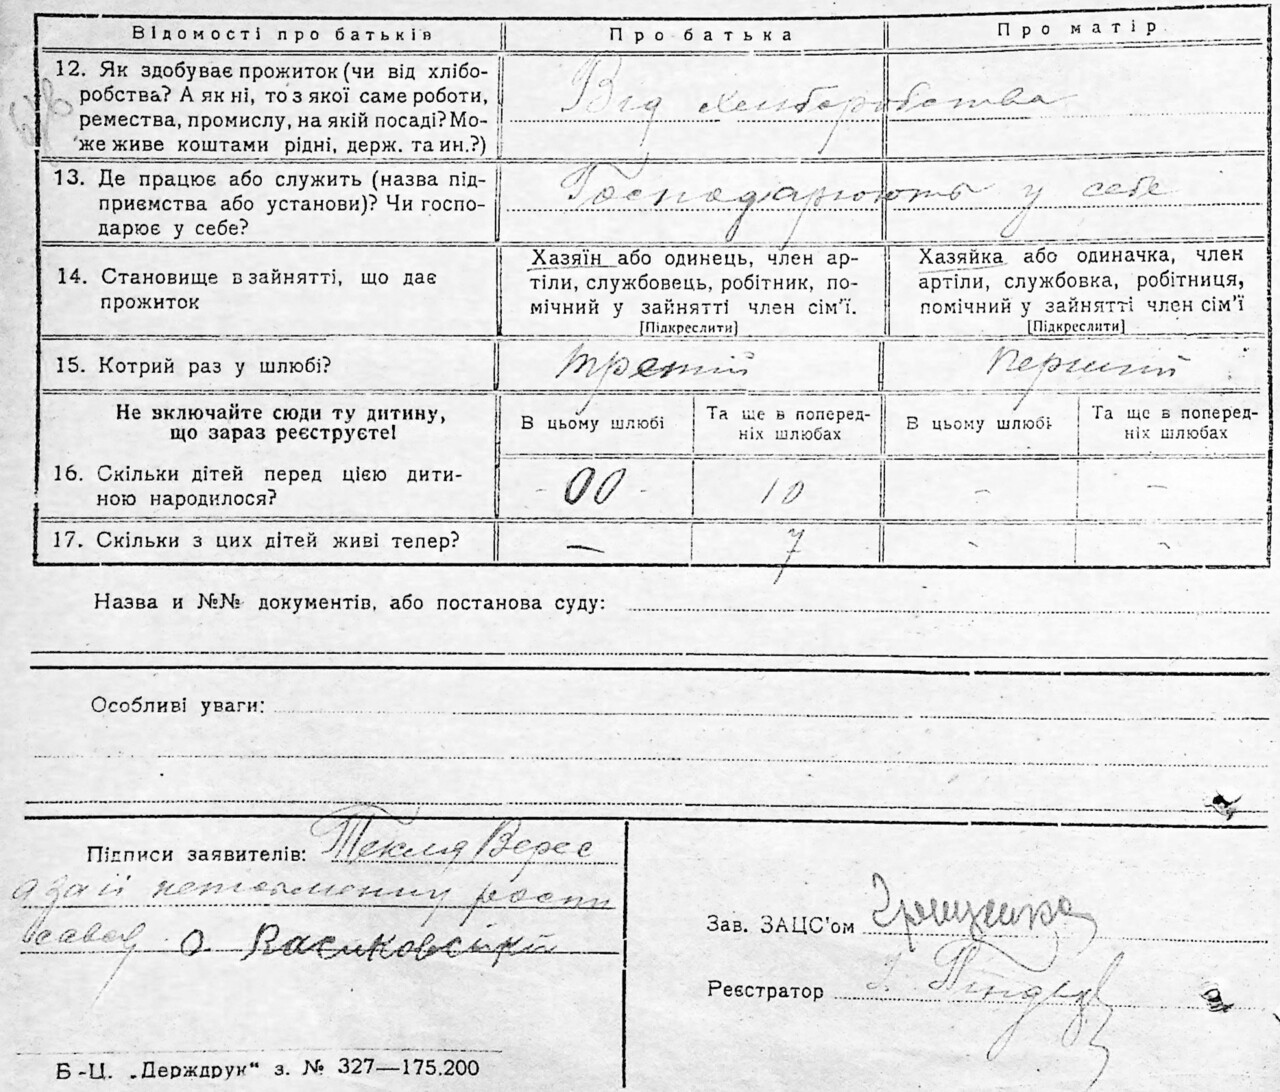 Відомості про батьків Про батька Про матір
12. Як здобуває прожиток (чи від хлібо-
робства? А як ні, то з якої саме роботи,
ремества, промислу, на якій посаді? Мо-
же живе коштами рідні, держ. та ин.?)
Від хліборобства
13. Де працює або служить (назва під-
приємства або установи)? Чи госпо-
дарює у себе?
Господарюють у себе
14. Становище в зайнятті, що дає
прожиток
Хазяїн або одинець, член ар-
тіли, службовець, робітник, по-
мічний у зайнятті член сім'ї.
[Підкреслити]
Хазяйка або одиначка, член
артіли, службовка, робітниця,
помічний у зайнятті член сім'ї
[Підкреслити]
15. Котрий раз у шлюбі? третій перший
Не включайте сюди ту дитину,
що зараз реєструєте!
В цьому шлюбі
Та ще в поперед-
ніх шлюбах
В цьому шлюбі
Та ще в поперед-
ніх шлюбах
16. Скільки дітей перед цією дити-
ною народилося?
- 00 - 10 - -
17. Скільки з цих дітей живі тепер? — 7 - -
Назва и №№ документів, або постанова суду:
Особливі уваги:
Підписи заявителів: Текля Верес
а за її неписьменну розпи
савсь О. Василовский
Зав. ЗАЦС'ом
Реєстратор
Б-Ц. „Держдрук“ з. № 327—175.200